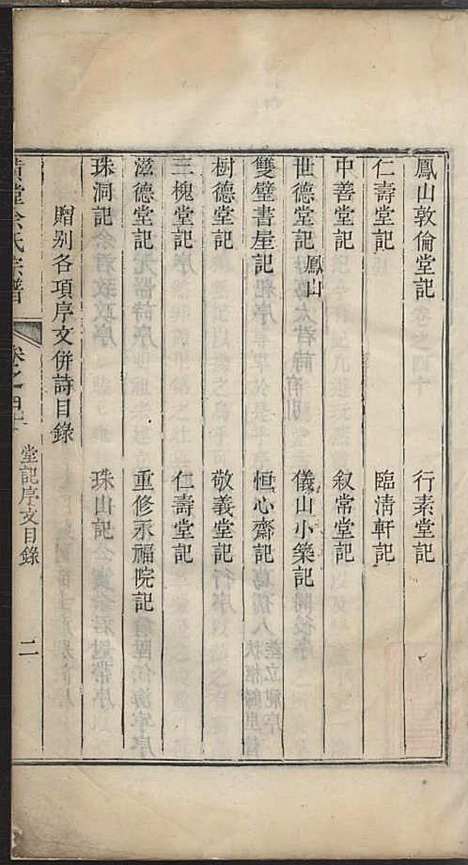 鳳山敦倫堂記　行素堂記
仁壽堂記　臨清軒記
中善堂記　叙常堂記
世德堂記 鳳山　儀山小樂記
雙璧書屋記　恒心齋記
樹德堂記　敬義堂記
三槐堂記　仁壽堂記
滋德堂記　重修永福院記
珠洞記　珠山記
贈别各項序文併詩目錄
氏宗譜　卷之四十　堂記序文目錄　二